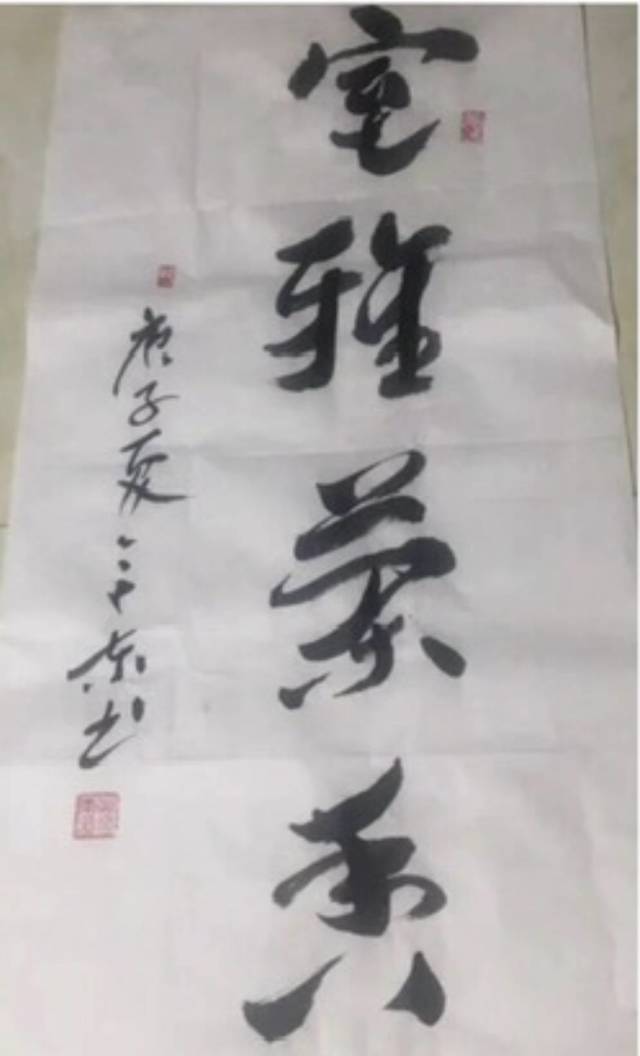 室雅兰香
庚子夏 东书